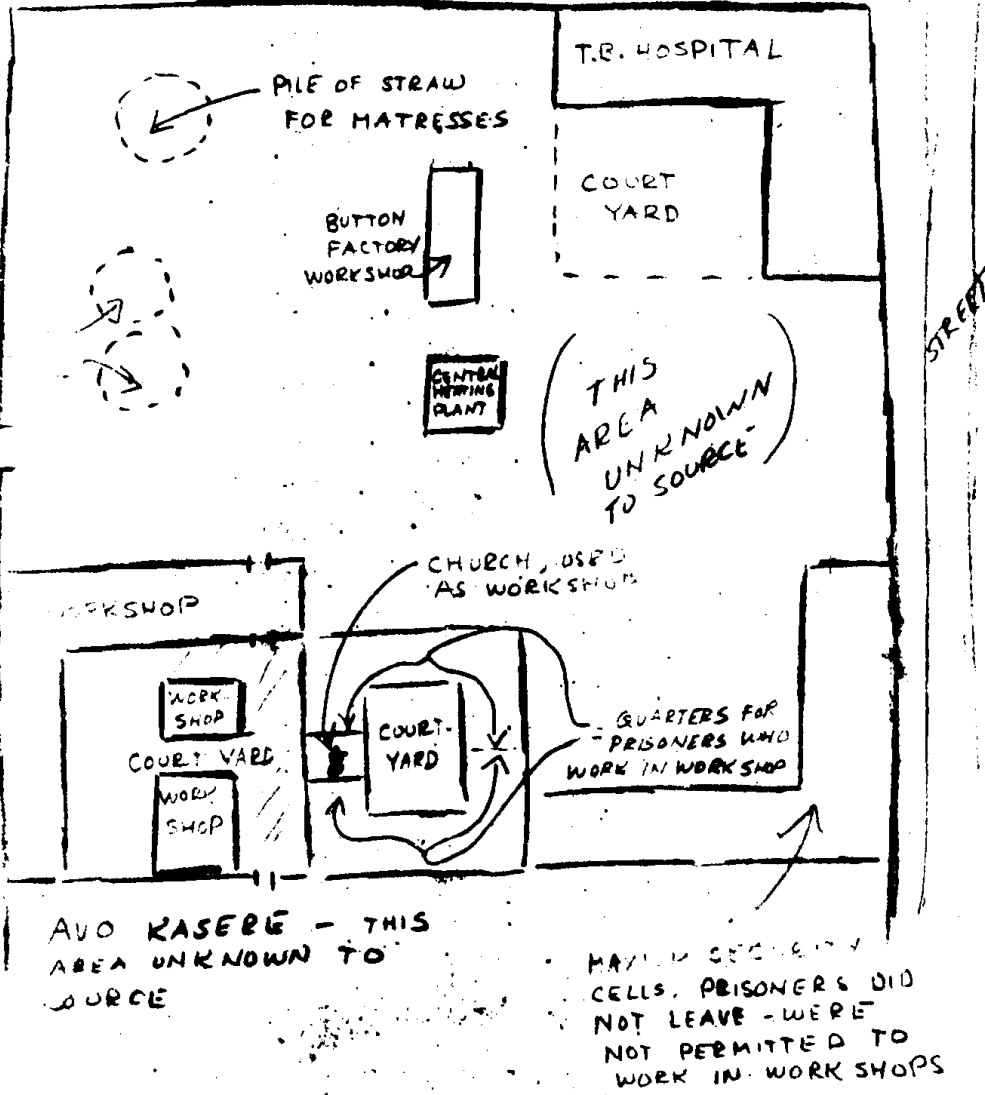 T.B. HOSPITAL
PILE OF STRAW
FOR MATRESSES
COURT
YARD
BUTTON
FACTORY
WORKSHOP
STREET
CENTRAL
HEATING
PLANT
THIS
AREA
UNKNOWN
TO SOURCE
CHURCH, USED
AS WORKSHOP
WORKSHOP
WORK
SHOP
COURT YARD
WORK
SHOP
COURT-
YARD
QUARTERS FOR
PRISONERS WHO
WORK IN WORKSHOP
AVO KASERE - THIS
AREA UNKNOWN TO
SOURCE
SECURITY
CELLS. PRISONERS DID
NOT LEAVE - WERE
NOT PERMITTED TO
WORK IN WORK SHOPS